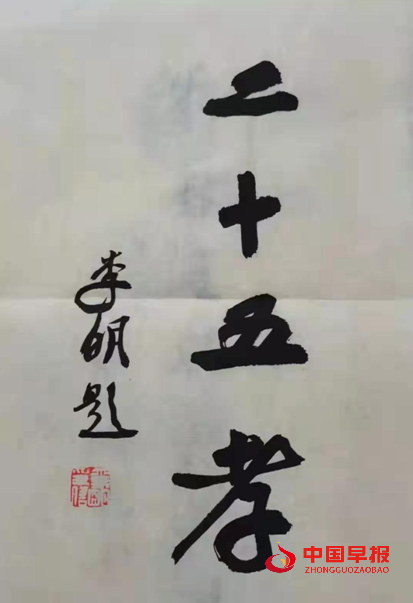 二十五孝
李明题
中国早报
ZHONGGUOZAOBAO